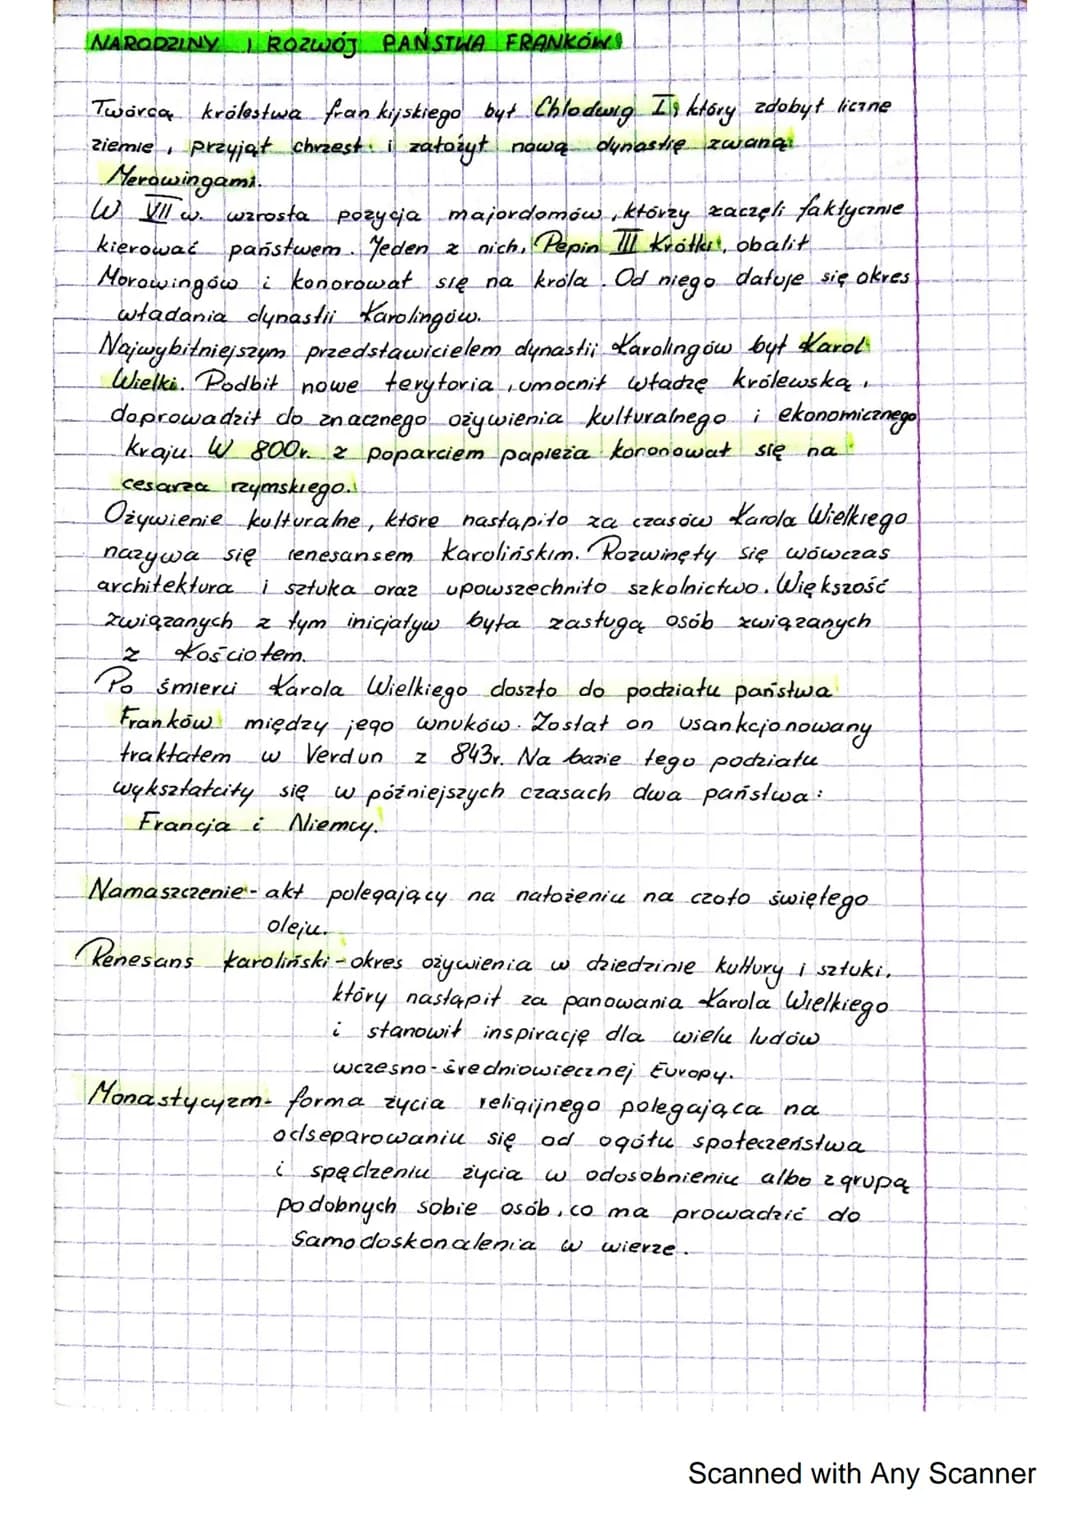 NARODZINY I ROZWÓJ PAŃSTWA FRANKÓW
Twórcą królestwa frankijskiego był Chlodwig I, który zdobył liczne
ziemie, przyjął chrzest i założył nową dynastię zwaną
Merowingami.
W VII w. wzrosła pozycja majordomów, którzy zaczęli faktycznie
kierować państwem. Jeden z nich, Pepin III Krótki, obalił
Morowingów i konorował się na króla. Od niego datuje się okres
władania dynastii Karolingów.
Najwybitniejszym przedstawicielem dynastii Karolingów był Karol
Wielki. Podbił nowe terytoria, umocnił władzę królewską,
doprowadził do znacznego ożywienia kulturalnego i ekonomicznego
kraju. W 800r. z poparciem papieża koronował się na
cesarza rzymskiego.
Ożywienie kulturalne, które nastąpiło za czasów Karola Wielkiego
nazywa się renesansem karolińskim. Rozwinęły się wówczas
architektura i sztuka oraz upowszechniło szkolnictwo. Większość
związanych z tym inicjatyw była zasługą osób związanych
z Kościołem.
Po śmierci Karola Wielkiego doszło do podziału państwa
Franków między jego wnuków. Został on usankcjonowany
traktatem w Verdun z 843r. Na bazie tego podziału
wykształciły się w późniejszych czasach dwa państwa:
Francja i Niemcy.
Namaszczenie - akt polegający na nałożeniu na czoło świętego
oleju.
Renesans karoliński - okres ożywienia w dziedzinie kultury i sztuki,
który nastąpił za panowania Karola Wielkiego
i stanowił inspirację dla wielu ludów
wczesno-średniowiecznej Europy.
Monastycyzm - forma życia religijnego polegająca na
odseparowaniu się od ogółu społeczeństwa
i spędzeniu życia w odosobnieniu albo z grupą
podobnych sobie osób, co ma prowadzić do
samodoskonalenia w wierze.
Scanned with Any Scanner